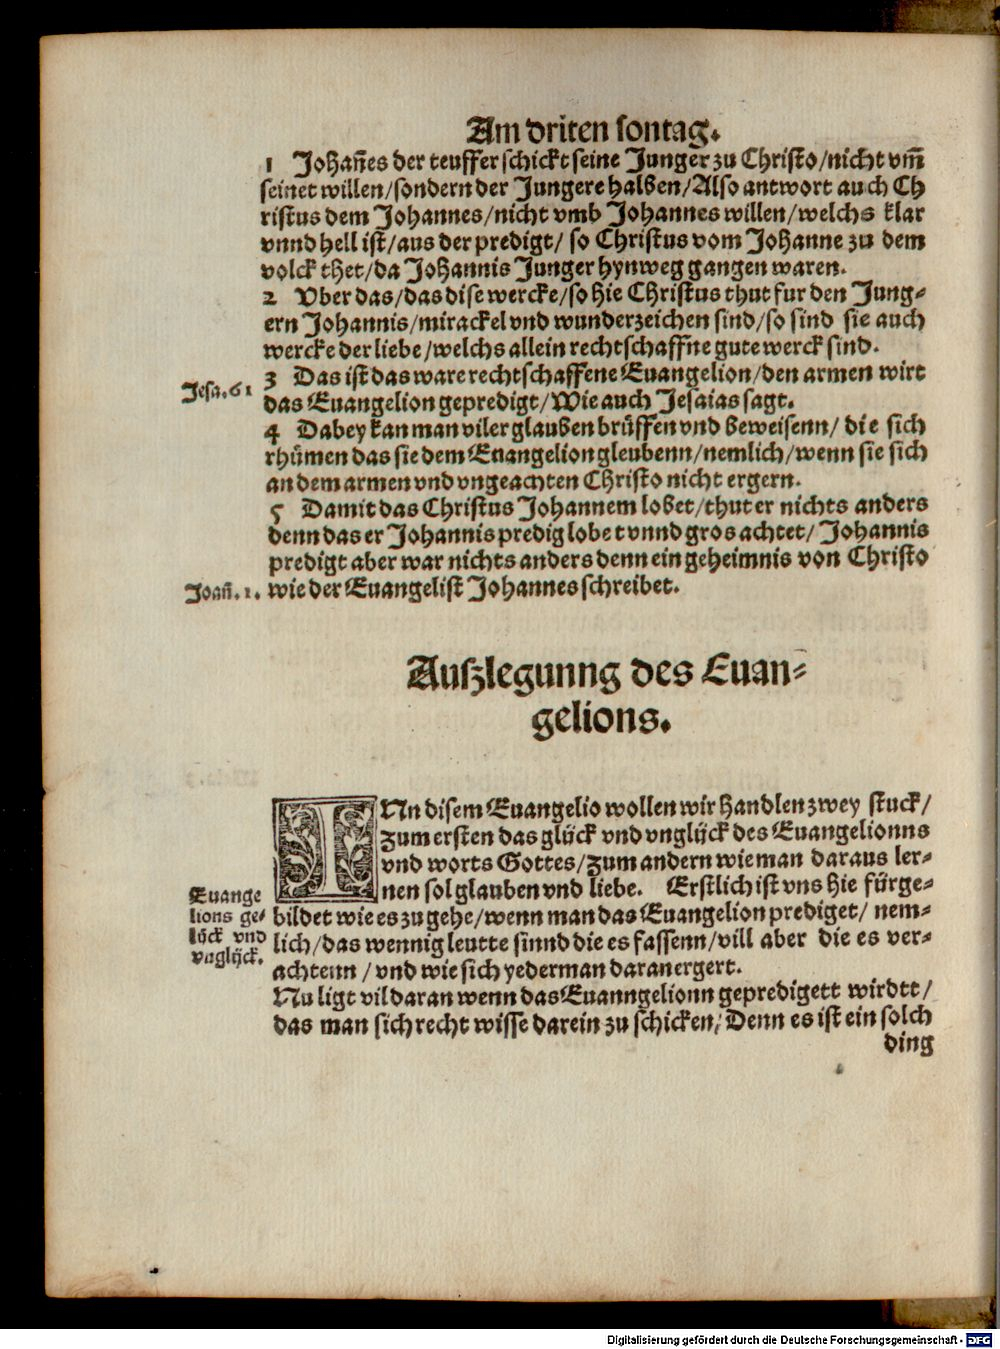 Am driten sontag.
1 Johañes der teuffer schickt seine Junger zu Christo/nicht vm̃
seinet willen/sondern der Jungere halben/Also antwort auch Ch
ristus dem Johannes/nicht vmb Johannes willen/welchs klar
vnnd hell ist/aus der predigt/ so Christus vom Johanne zu dem
volck thet/da Johannis Junger hynweg gangen waren.
2 Vber das/das dise wercke/so hie Christus thut fur den Jung⸗
ern Johannis/mirackel vnd wunderzeichen sind/so sind sie auch
wercke der liebe/welchs allein rechtschaffne gute werck sind.
Jesa.61
3 Das ist das ware rechtschaffene Euangelion/den armen wirt
das Euangelion gepredigt/Wie auch Jesaias sagt.
4 Dabey kan man viler glauben brüffen vnd beweisenn/ die sich
rhümen das sie dem Euangelion gleubenn/nemlich/wenn sie sich
an dem armen vnd vngeachten Christo nicht ergern.
5 Damit das Christus Johannem lobet/thut er nichts anders
denn das er Johannis predig lobet vnnd gros achtet/ Johannis
predigt aber war nichts anders denn ein geheimnis von Christo
Joañ.1.
wie der Euangelist Johannes schreibet.
Auszlegunng des Euan⸗
gelions.
INn disem Euangelio wollen wir handlen zwey stuck/
zum ersten das glück vnd vnglück des Euangelionns
vnd worts Gottes/zum andern wie man daraus ler⸗
nen sol glauben vnd liebe. Erstlich ist vns hie fürge⸗
Euange
lions ge⸗
lück vnd
vnglück.
bildet wie es zu gehe/wenn man das Euangelion prediget/ nem⸗
lich/das wennig leutte sinnd die es fassenn/vill aber die es ver⸗
achtenn /vnd wie sich yederman daran ergert.
Nu ligt vil daran wenn das Euanngelionn gepredigett wirdtt/
das man sich recht wisse darein zu schicken/ Denn es ist ein solch
ding
Digitalisierung gefördert durch die Deutsche Forschungsgemeinschaft - DFG